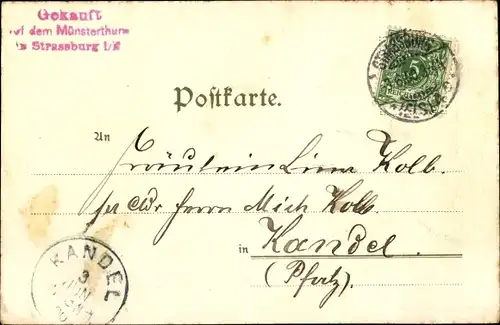 Gekauft
auf dem Münsterthurm
in Strassburg i/E
STRASSBURG
5
(ELSASS)
Postkarte.
An
Fräulein Lina Kolb.
per Adr Herrn Mich Kolb.
in Kandel.
(Pfalz)
KANDEL
3
JUN